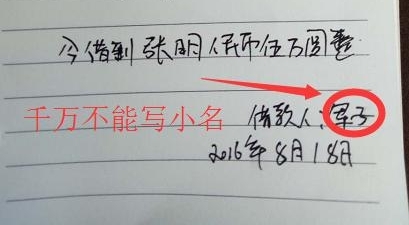 今借到张明人民币伍万圆整
千万不能写小名
借款人:军子
2016年8月18日